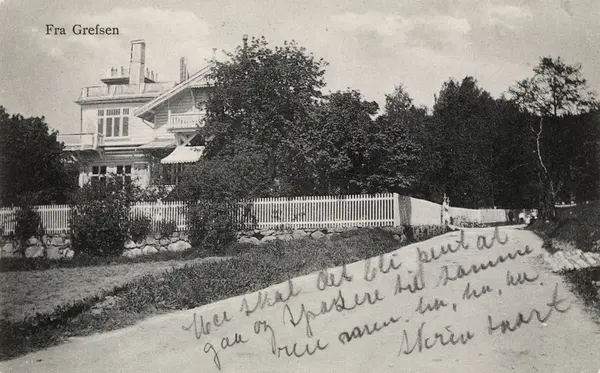 Fra Grefsen
Nei skal det bli pent at
gaa og spasere til samme
veien varen ha, ha, ha.
skriv snart